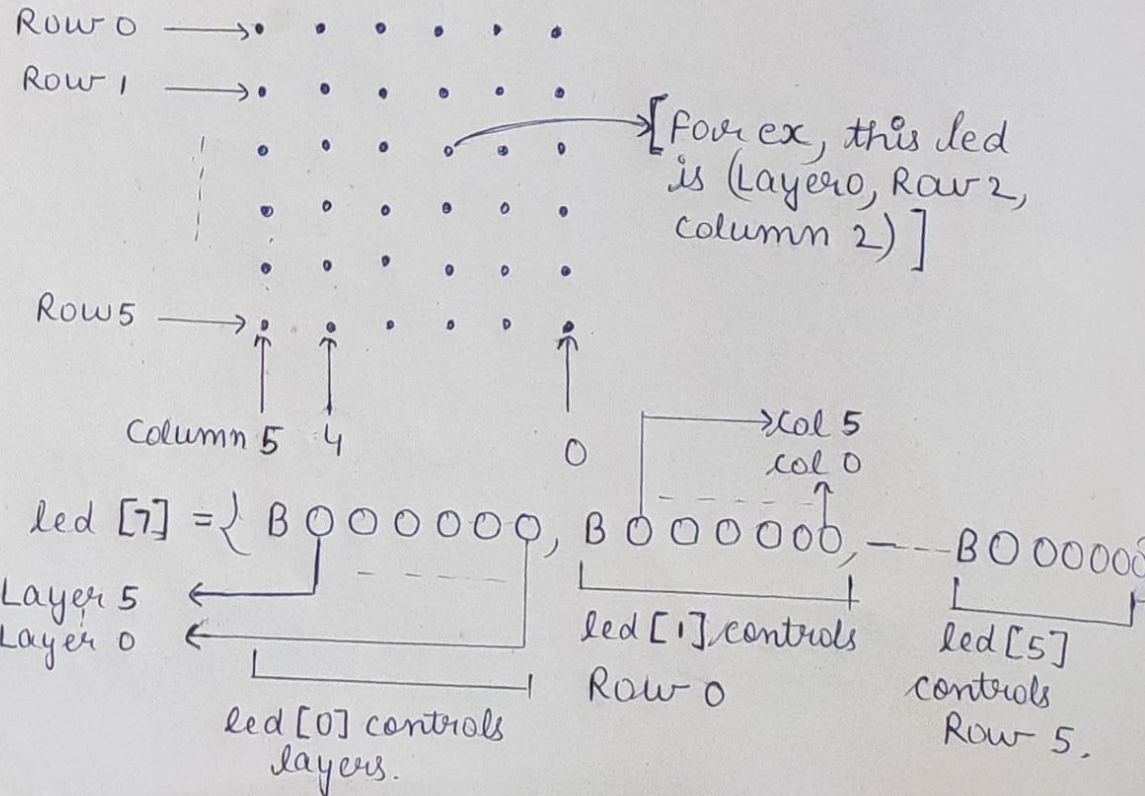 Row 0
Row 1
[For ex, this led
is (Layer0, Row 2,
column 2)]
Row 5
Column 5 4 0
Col 5
col 0
led [7] = { B000000, B000000, ---- B000000
Layer 5
Layer 0
led [0] controls
layers.
led [1] controls
Row 0
led [5]
controls
Row 5.